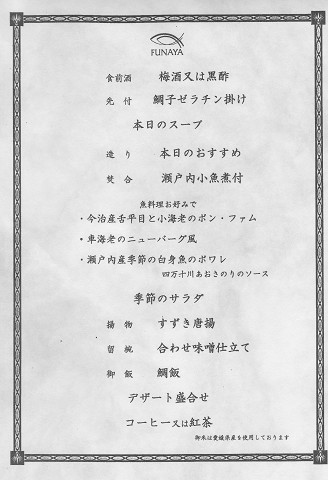 FUNAYA
食前酒 梅酒又は黒酢
先付 鯛子ゼラチン掛け
本日のスープ
造り 本日のおすすめ
焚合 瀬戸内小魚煮付
魚料理お好みで
・今治産舌平目と小海老のボン・ファム
・車海老のニューバーグ風
・瀬戸内産季節の白身魚のポワレ
四万十川あおさのりのソース
季節のサラダ
揚物 すずき唐揚
留椀 合わせ味噌仕立て
御飯 鯛飯
デザート盛合せ
コーヒー又は紅茶
御米は愛媛県産を使用しております